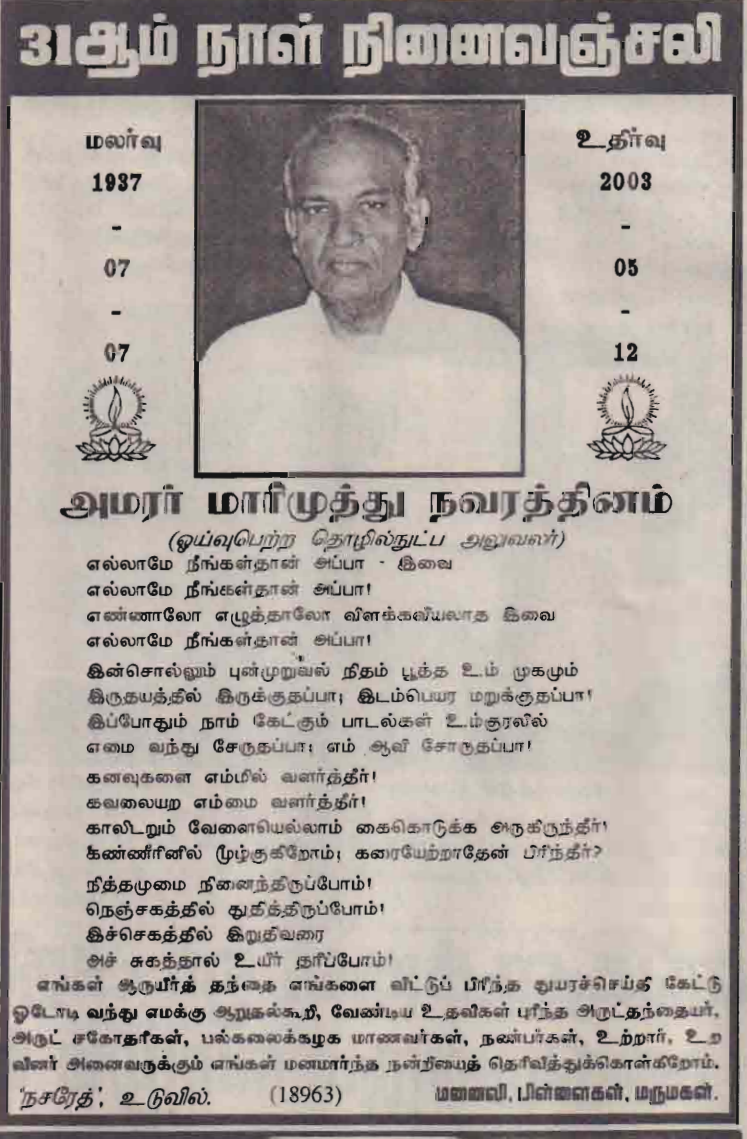 31ஆம் நாள் நினைவஞ்சலி
மலர்வு
1937
-
07
-
07
உதிர்வு
2003
-
05
-
12
அமரர் மாரிமுத்து நவரத்தினம்
(ஓய்வுபெற்ற தொழில்நுட்ப அலுவலர்)
எல்லாமே நீங்கள்தான் அப்பா - இவை
எல்லாமே நீங்கள்தான் அப்பா!
எண்ணாலோ எழுத்தாலோ விளக்கவியலாத இவை
எல்லாமே நீங்கள்தான் அப்பா!
இன்சொல்லும் புன்முறுவல் நிதம் பூத்த உம் முகமும்
இருதயத்தில் இருக்குதப்பா; இடம்பெயர மறுக்குதப்பா!
இப்போதும் நாம் கேட்கும் பாடல்கள் உம்குரலில்
எமை வந்து சேருதப்பா; எம் ஆவி சோருதப்பா!
கனவுகளை எம்மில் வளர்த்தீர்!
கவலையற எம்மை வளர்த்தீர்!
காலிடறும் வேளையெல்லாம் கைகொடுக்க அருகிருந்தீர்!
கண்ணீரினில் மூழ்குகிறோம்; கரையேற்றாதேன் பிரிந்தீர்?
நித்தமுமை நினைந்திருப்போம்!
நெஞ்சகத்தில் துதித்திருப்போம்!
இச்செகத்தில் இறுதிவரை
அச் சுகத்தால் உயிர் தரிப்போம்!
எங்கள் ஆருயிர்த் தந்தை எங்களை விட்டுப் பிரிந்த துயரச்செய்தி கேட்டு
ஓடோடி வந்து எமக்கு ஆறுதல்கூறி, வேண்டிய உதவிகள் புரிந்த அருட்தந்தையர்,
அருட் சகோதரிகள், பல்கலைக்கழக மாணவர்கள், நண்பர்கள், உற்றார், உற
வினர் அனைவருக்கும் எங்கள் மனமார்ந்த நன்றியைத் தெரிவித்துக்கொள்கிறோம்.
'நசரேத்', உடுவில். (18963) மனைவி, பிள்ளைகள், மருமகள்.